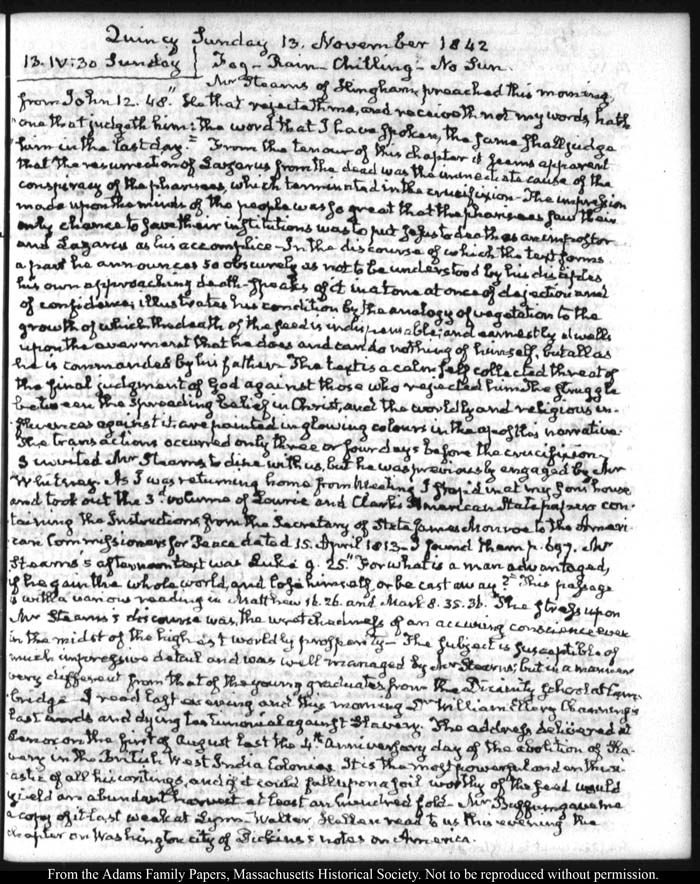 Quincy Sunday 13. November 1842
13. IV:30 Sunday } Fog - Rain - Chilling - No Sun.
Mr Stearns of Hingham, preached this morning,
from John 12. 48. "He that rejecteth me, and receiveth not my words, hath
"one that judgeth him: the word that I have spoken, the same shall judge
"him in the last day." From the tenour of this chapter it seems apparent
that the resurrection of Lazarus from the dead was the immediate cause of the
conspiracy of the pharisees, which terminated in the crucifixion - The impression
made upon the minds of the people was so great that the pharisees saw their
only chance to save their institutions was to put Jesus to death as an impostor
and Lazarus as his accomplice - In the discourse of which the text forms
a part he announces so obscurely as not to be understood by his disciples
his own approaching death - speaks of it in a tone at once of dejection and
of confidence; illustrates his condition by the analogy of vegetation to the
growth of which the death of the seed is indispensable; and earnestly dwells
upon the averment that he does and can do nothing of himself, but all as
he is commanded by his father. The text is a calm, self collected threat of
the final judgment of God against those who rejected him. The struggle
between the spreading belief in Christ, and the worldly and religious in-
fluences against it, are painted in glowing colours in the of this narrative.
The transactions occurred only three or four days before the crucifixion -
I invited Mr Stearns to dine with us, but he was previously engaged by Mr
Whitney. As I was returning home from Meeting I stop'd in at my Sons house
and took out the 3d. volume of Lowrie and Clarke's American State papers con-
taining the Instructions from the Secretary of State James Monroe to the Ameri-
can Commissioners for Peace dated 15. April 1813 - I found them p. 697. Mr
Stearns's afternoon text was Luke 9. 25. "For what is a man advantaged,
if he gain the whole world, and lose himself, or be cast away?" This passage
is with a various reading in Matthew 16. 26. and Mark 8. 35. 36. The stress upon
Mr Stearns's discourse was, the wretchedness of an accusing conscience even
in the midst of the highest worldly prosperity - The subject is susceptible of
much impressive detail and was well managed by Mr Stearns; but in a manner
very different from that of the young graduates from the Divinity School at Cam-
bridge - I read last evening and this morning Dr William Ellery Channing's
last words and dying testimonial against Slavery. The address delivered at
Lenox on the first of August last the 4th. anniversary day of the abolition of Sla-
very in the British West India Colonies. It is the most powerful and enthusi-
astic of all his writings, and if it could fall upon a soil worthy of the seed would
yield an abundant harvest at least an hundred fold - Mr Buffum gave me
a copy of it last week at Lynn - Walter Hellen read to us this evening the
chapter on Washington city of Dickens's notes on America.
From the Adams Family Papers, Massachusetts Historical Society. Not to be reproduced without permission.